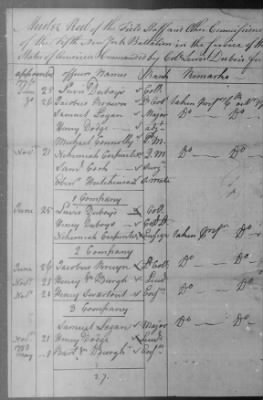 Muster Roll of the Field Staff and Other Commissioned
of the Fifth New York Battalion in the Service of the
States of America Commanded by Colo. Lewis Dubois for
appointed Officers Names Rank Remarks
June 25 Lewis Duboys Coll.
Do 26 Jacobus Bruwn Lt Coll taken
Samuel Logan Major Do — Do
Henry Dodge Adj.
Michael Connolly P.M.
Novr 21 Nehemiah Carpenter Q.M. Do — Do
Saml Cook Surg.
Eben Hutchinson
1 Company
June 25 Lewis Duboys Coll.
Henry Duboys Capt Lt
Nehemiah Carpenter Ensign taken
2 Company
June 26 Jacobus Bruyn Lt Coll Do — Do
Novr 21 Henry V Burgh Lieut
Novr 21 Henry Swartout Ensn Do — Do
3 Company
Samuel Logan Major Do — Do
Novr 21 Henry Dodge Lieut Do — Do
Bart. V Burgh Ensn
27.